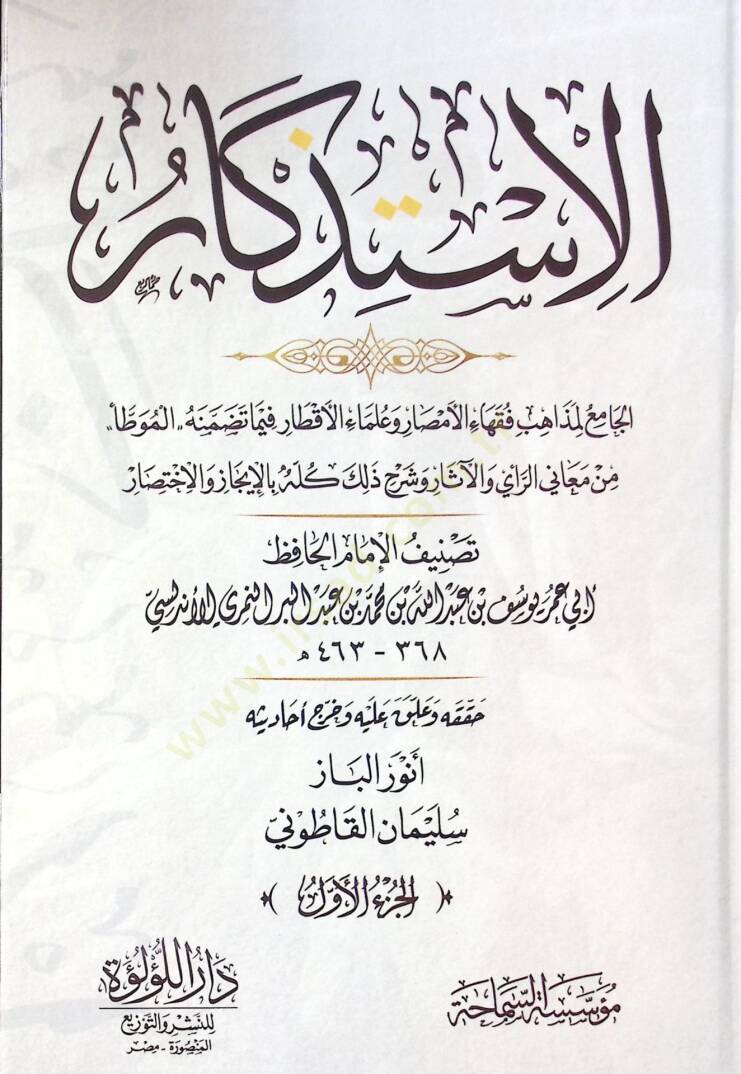 الِاسْتِذْكَارُ
الجَامِعُ لِمَذَاهِبِ فُقَهَاءِ الأَمْصَارِ وَعُلَمَاءِ الأَقْطَارِ فِيمَا تَضَمَّنَهُ «المُوَطَّأ»
مِنْ مَعَانِي الرَّأْيِ وَالآثَارِ وَشَرْحِ ذَلِكَ كُلِّهِ بِالإِيجَازِ وَالِاخْتِصَارِ
تَصْنِيفُ الإِمَامِ الحَافِظِ
أبي عمر يوسف بن عبد الله بن محمد بن عبد البر النمري الأندلسيّ
٣٦٨ - ٤٦٣ هـ
حَقَّقَهُ وَعَلَّقَ عَلَيْهِ وَخَرَّجَ أَحَادِيثَهُ
أَنْوَر البَاز
سُلَيْمَان القَاطُونِيّ
﴿ الجُزْءُ الأَوَّلُ ﴾
مُؤَسَّسَةُ السَّمَاحَة
دَارُ اللُّؤْلُؤَة
لِلنَّشْرِ وَالتَّوْزِيعِ
المَنْصُورَة - مِصْر